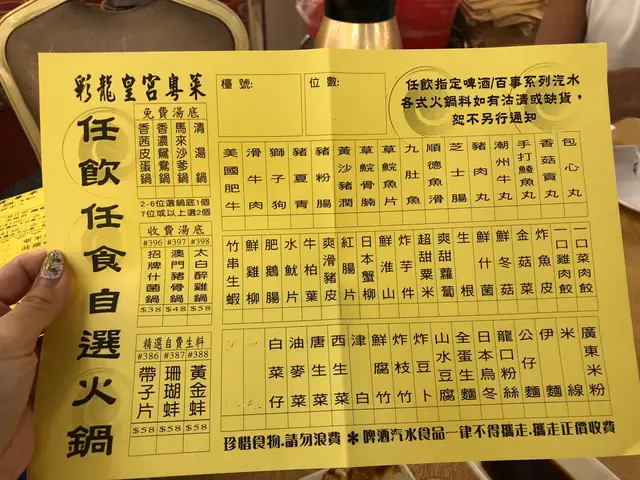 彩龍皇宮粵菜
檯號:
位數:
任飲指定啤酒/百事系列汽水
各式火鍋料如有沽清或缺貨,
恕不另行通知
任飲任食自選火鍋
免費湯底
香茜皮蛋鍋
香濃鴛鴦鍋
馬來沙爹鍋
清湯鍋
2-6位選鍋底1個
7位或以上選2個
收費湯底
#396 #397 #398
招牌什菌鍋
澳門豬骨鍋
太白醉雞鍋
$38 $48 $58
精選自費生料
#386 #387 #388
帶子片
珊瑚蚌
黃金蚌
$58 $58 $58
美國肥牛
滑牛肉
獅子狗
豬夏青
豬粉腸
黃沙豬潤
草鯇骨腩
草鯇魚片
九肚魚
順德魚滑
芝士腸
豬肉丸
潮州牛丸
手打鯪魚丸
香菇貢丸
包心丸
竹串生蝦
鮮雞柳
肥鵝腸
水魷片
牛柏葉
爽滑豬皮
紅腸片
日本蟹柳
鮮淮山
炸芋件
超甜粟米
爽甜蘿蔔
生根
鮮什菌
鮮冬菇
金菇菜
炸魚皮
一口雞肉餃
一口菜肉餃
白菜仔
油麥菜
唐生菜
西生菜
津白
鮮腐竹
炸枝竹
炸豆卜
山水豆腐
全蛋生麵
日本烏冬
龍口粉絲
公仔麵
伊麵
米線
廣東米粉
珍惜食物.請勿浪費 ✻ 啤酒汽水食品一律不得攜走.攜走正價收費